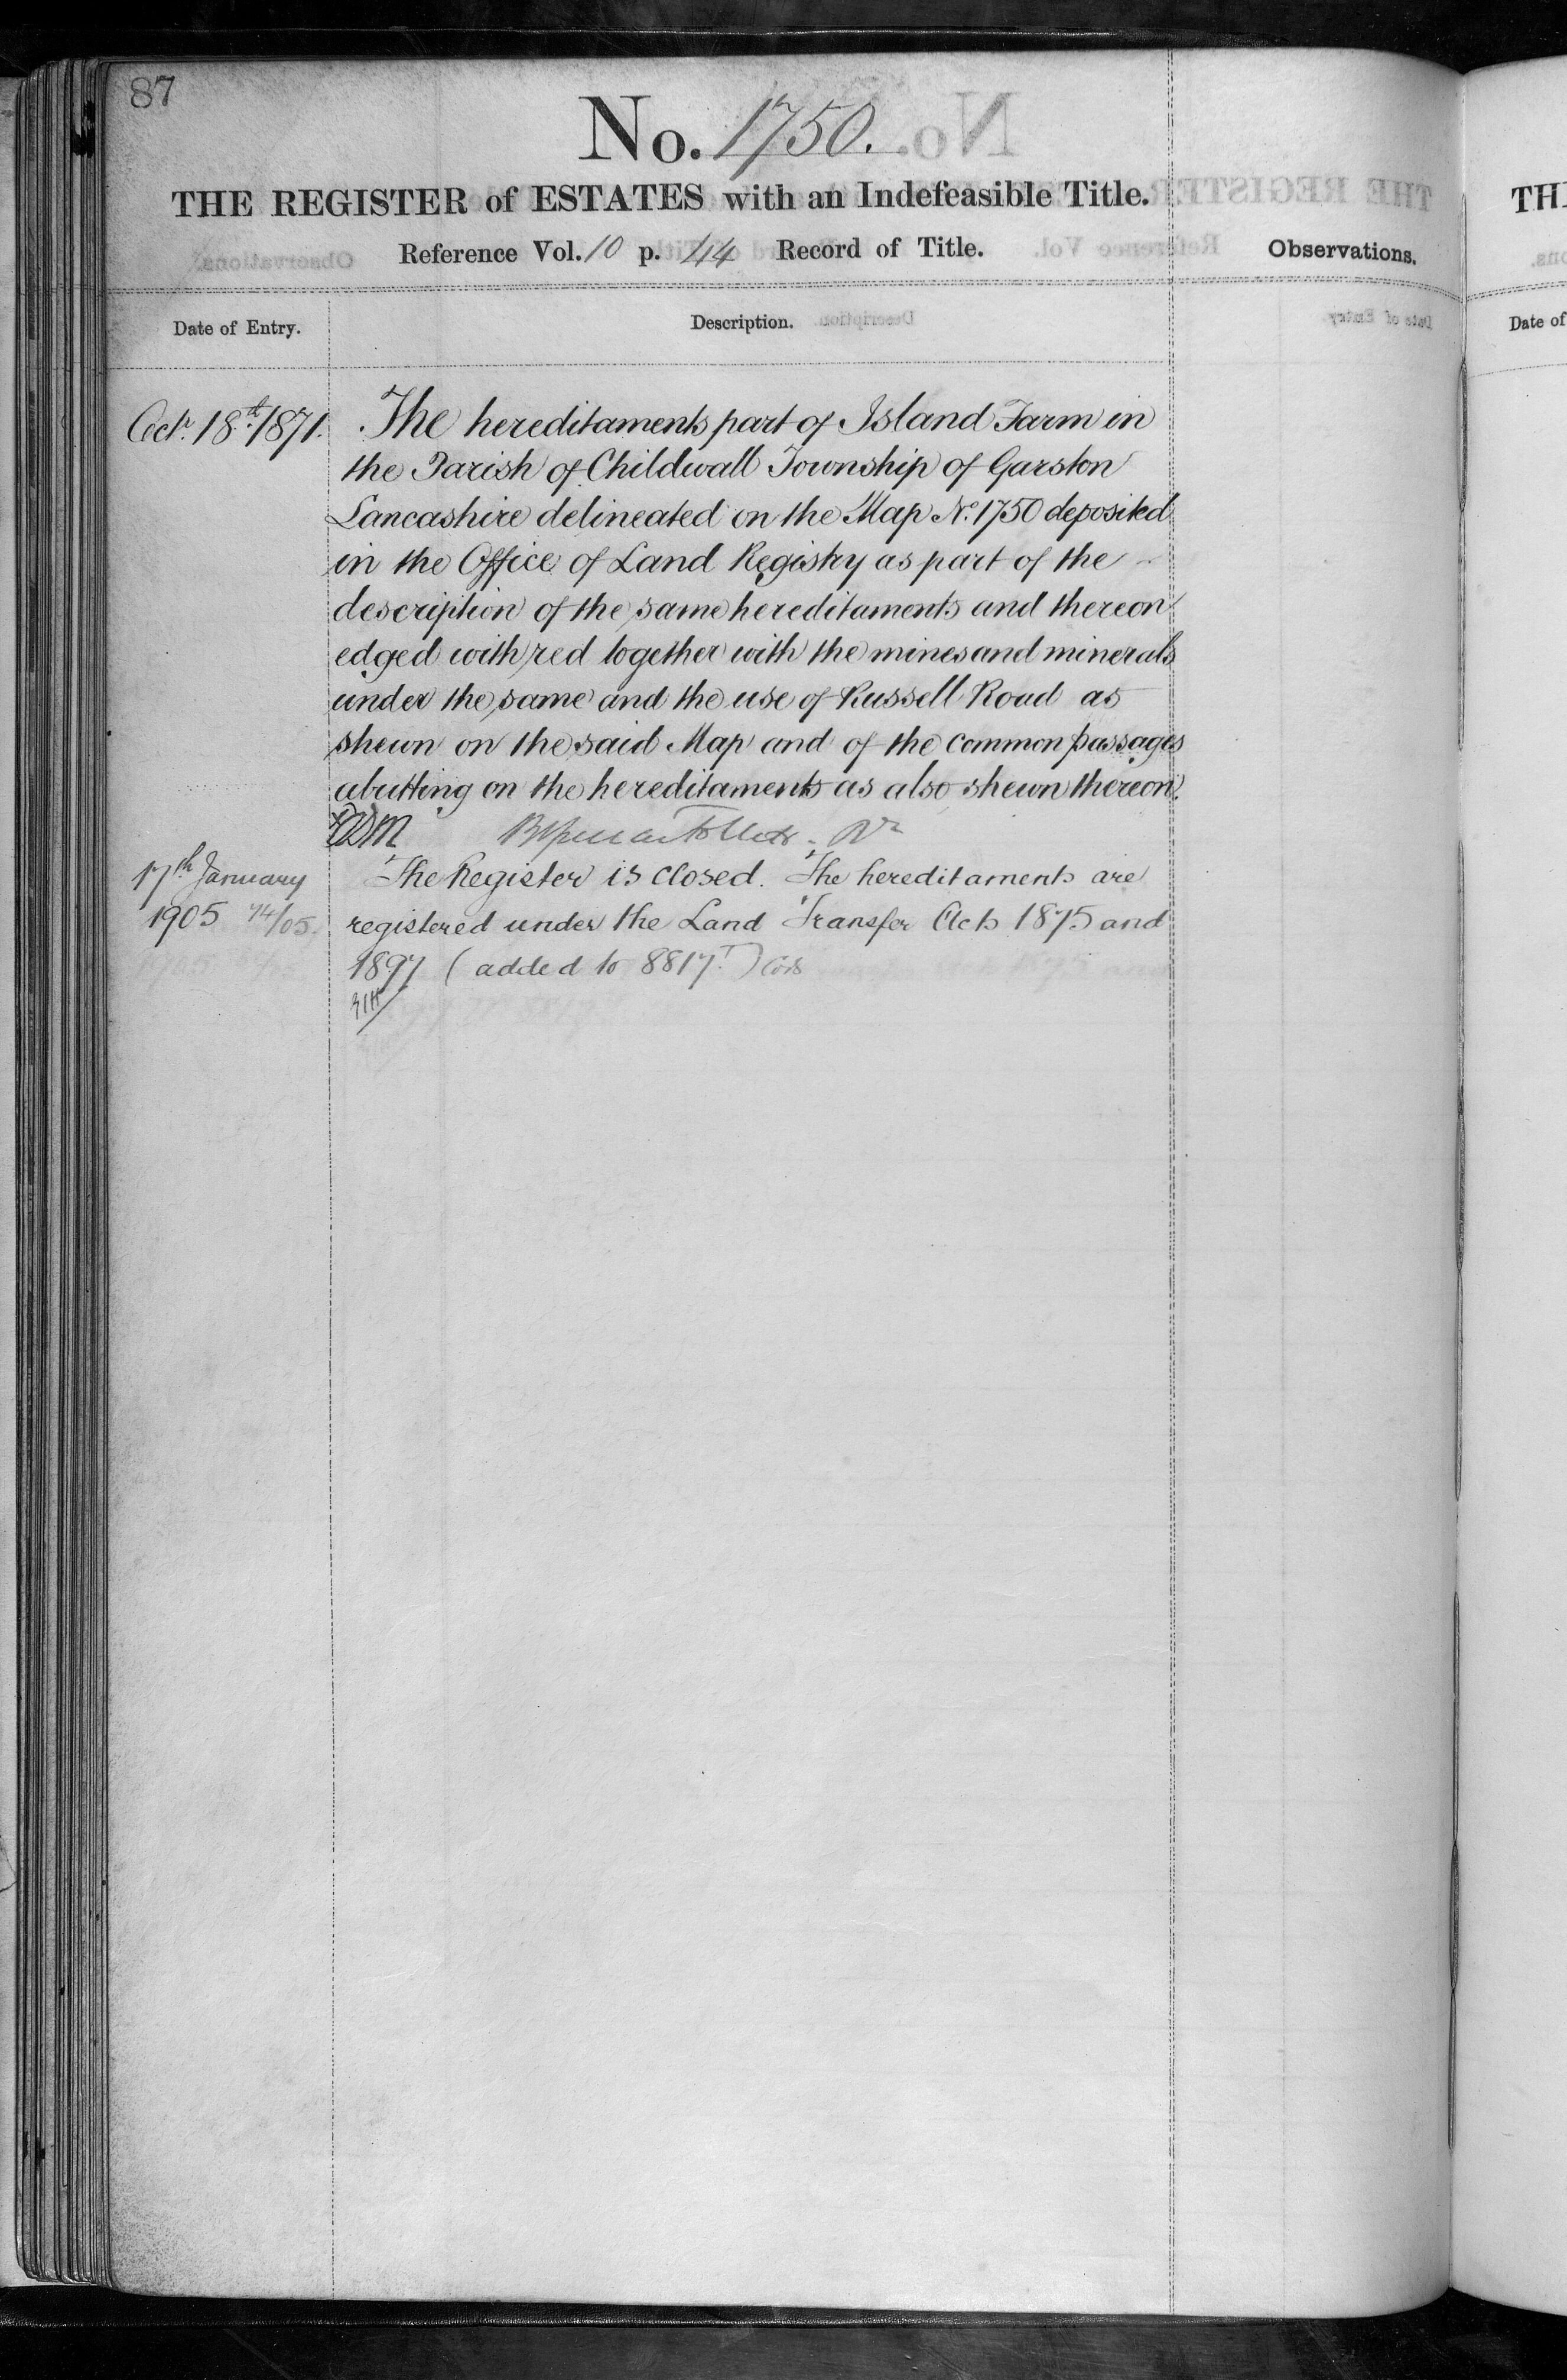 87
No. 1750.
THE REGISTER of ESTATES with an Indefeasible Title.
Reference Vol. 10 p. 44 Record of Title.
Observations.
Date of Entry.
Description.
Octr. 18th. 1871.
The hereditaments part of Island Farm in
the Parish of Childwall Township of Garston
Lancashire delineated on the Map No. 1750 deposited
in the Office of Land Registry as part of the
description of the same hereditaments and thereon
edged with red together with the mines and minerals
under the same and the use of Russell Road as
shewn on the said Map and of the common passages
abutting on the hereditaments as also shewn thereon.
17th January
1905 74/05.
The Register is closed. The hereditaments are
registered under the Land Transfer Acts 1875 and
1897 (added to 8817.)
TH
Date of